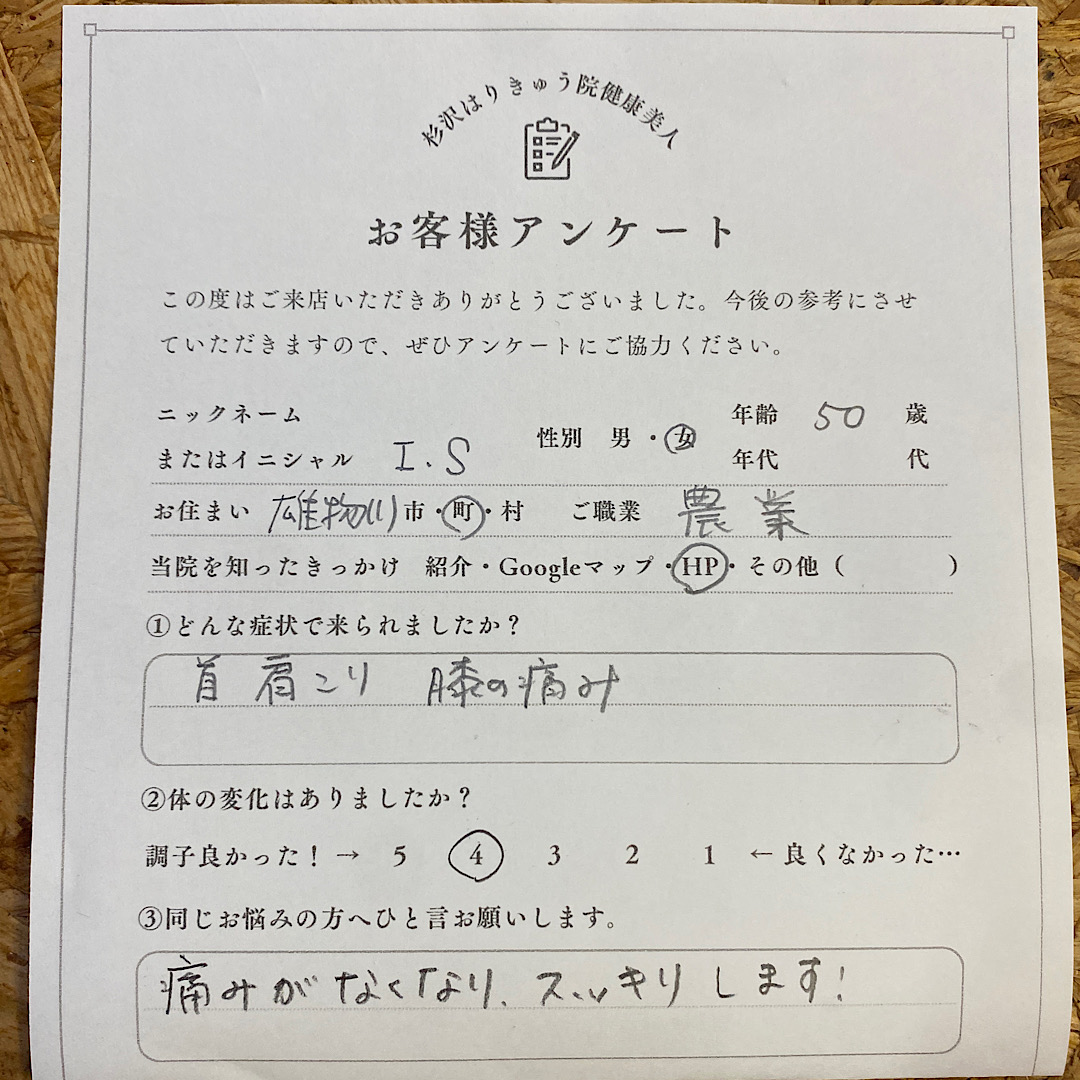 杉沢はりきゅう院健康美人
お客様アンケート
この度はご来店いただきありがとうございました。今後の参考にさせ
ていただきますので、ぜひアンケートにご協力ください。
ニックネーム
またはイニシャル I.S 性別 男・女 年齢 50 歳
年代 代
お住まい 雄物川 市・町・村 ご職業 農業
当院を知ったきっかけ 紹介・Googleマップ・HP・その他( )
①どんな症状で来られましたか?
首肩こり 膝の痛み
②体の変化はありましたか?
調子良かった!→ 5 4 3 2 1 ←良くなかった…
③同じお悩みの方へひと言お願いします。
痛みがなくなり、スッキリします!